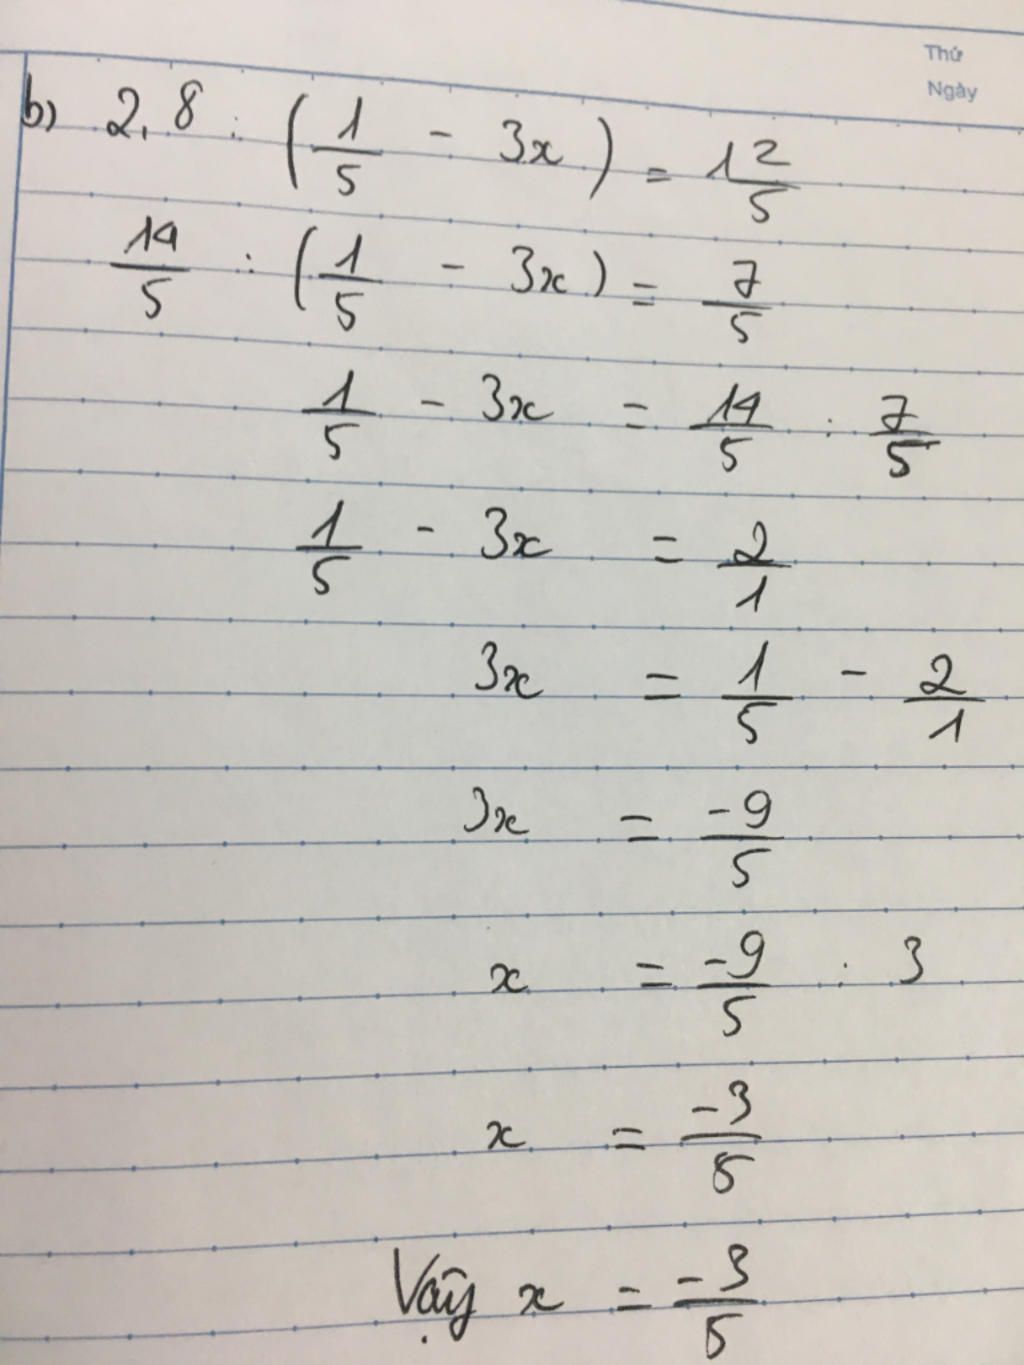 Thứ
Ngày
b) 2,8 : (1/5 - 3x) = 1 2/5
14/5 : (1/5 - 3x) = 7/5
1/5 - 3x = 14/5 : 7/5
1/5 - 3x = 2/1
3x = 1/5 - 2/1
3x = -9/5
x = -9/5 : 3
x = -3/5
Vậy x = -3/5